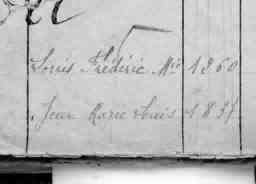 Louis Frédéric Mie 1860
Jean Marie Louis 183